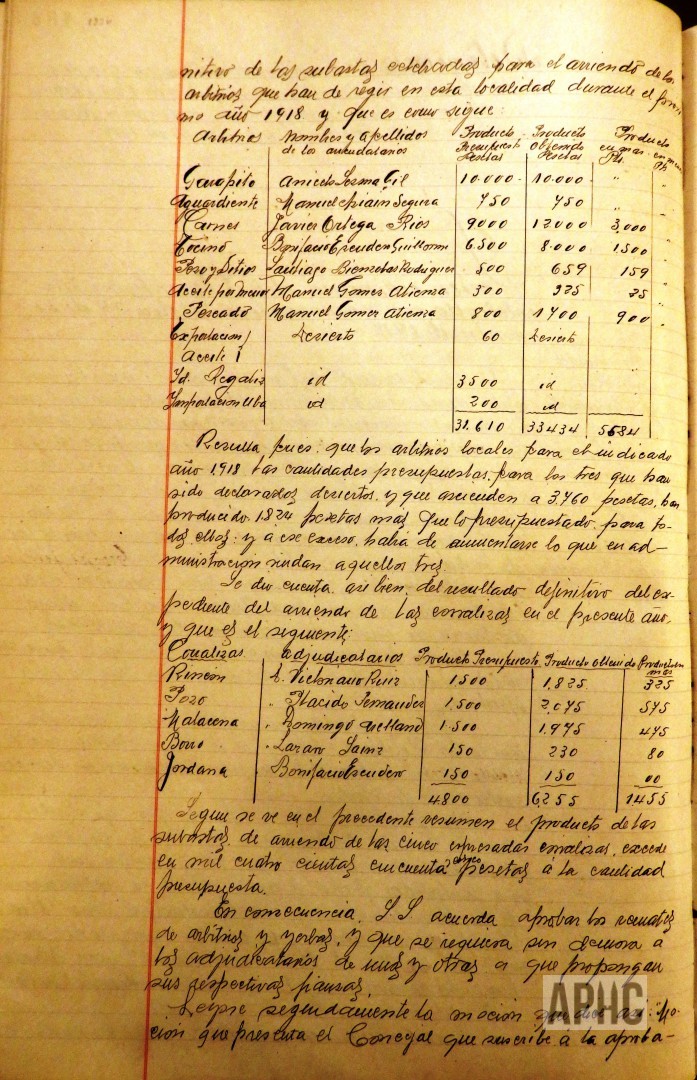 nitivo de las subastas celebradas para el arriendo de los
arbitrios que han de regir en esta localidad durante el próxi
mo año 1918 y que es como sigue:
Arbitrios Nombres y apellidos de los arrendatarios Producto Presupuesto Pesetas Producto Obtenido Pesetas Producto en mas Pts. Producto en menos Pts
Garapito Aniceto Lezma Gil 10.000 10.000 " "
Aguardiente Manuel Chiain Segura 750 750 " "
Carnes Javier Ortega Rios 9000 12000 3,000 "
Tocino Bonifacio Escudero Guillorme 6500 8.000 1500 "
Peso y Sitios Santiago Bienzobas Rodriguez 500 659 159 "
Aceite por menor Manuel Gomez Atienza 300 325 25 "
Pescado Manuel Gomez Atienza 800 1700 900 "
Exportacion Aceite } Desierto 60 Desierto
Id. Regaliz id 3500 id
Importacion Uba id 200 id
31.610 33434 5584
Resulta, pues, que los arbitrios locales para el indicado
año 1918 las cantidades presupuestas, para los tres que han
sido declarados desiertos, y que ascienden a 3.760 pesetas, han
producido 1.824 pesetas mas que lo presupuestado para to-
dos ellos: y a ese exceso, habia de aumentarse lo que en ad-
ministracion rindan aquellos tres.
Se dio cuenta, asi bien, del resultado definitivo del ex-
pediente del arriendo de las corralizas en el presente año,
y que es el siguiente:
Corralizas Adjudicatarios Producto Presupuesto Producto obtenido Producto en mas
Rincón D. Victoriano Ruiz 1500 1,825 325
Pozo " Placido Fernandez 1.500 2.075 575
Malacena " Domingo Arellano 1.500 1.975 475
Borro " Lazaro Sainz 150 230 80
Jordana Bonifacio Escudero 150 150 00
4800 6255 1455
Segun se ve en el precedente resumen el producto de las
subastas de arriendo de las cinco expresadas corralizas, excede
en mil cuatro cientas cincuenta y cinco pesetas á la cantidad
presupuesta.
En consecuencia, S.S. acuerda aprobar los remates
de arbitrios y yerbas, y que se requiera sin demora a
los adjudicatarios de unos y otras a que propongan
sus respectivas fianzas.
Leyose seguidamente la mocion que dice asi: "Mo-
ción que presenta el Concejal que suscribe á la aproba-
APHC